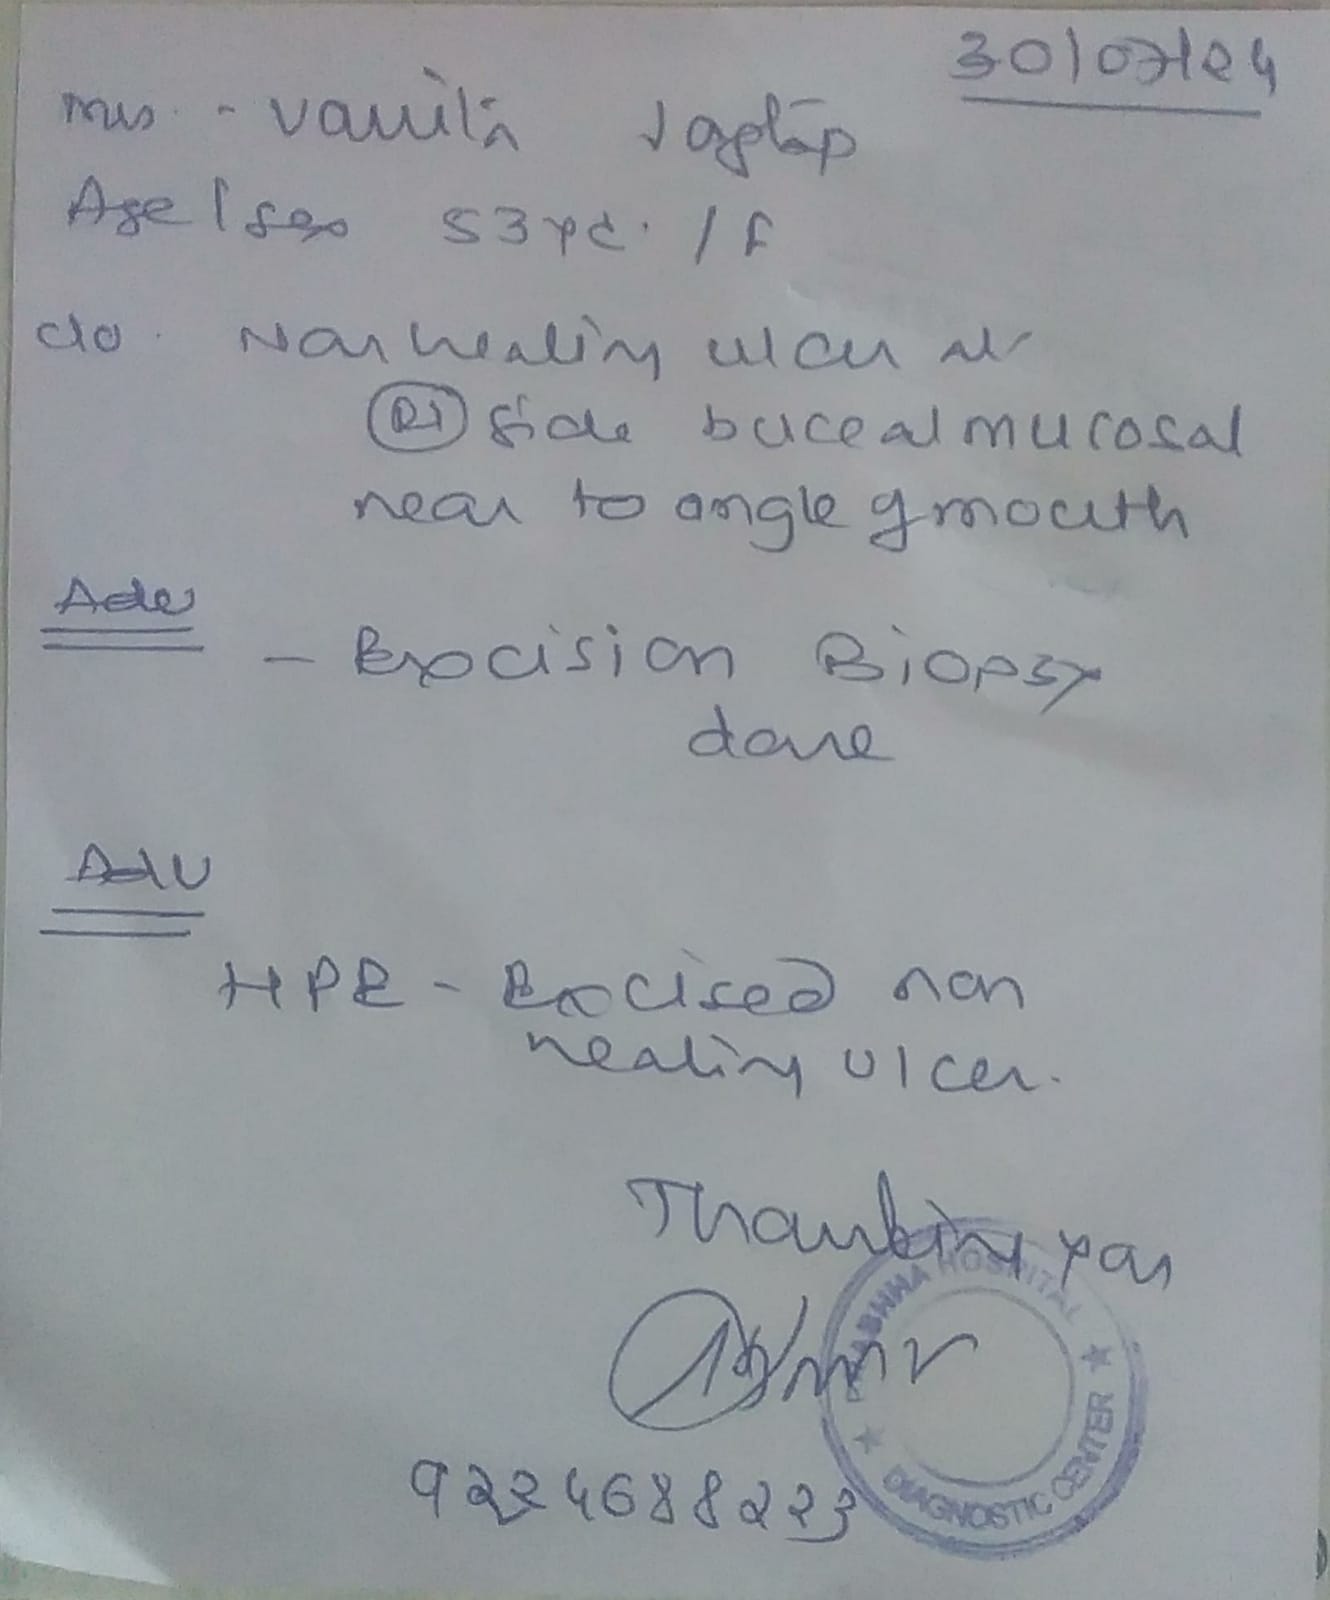 30/07/24
Mrs. - Vanita Jagtap
Age/Sex 53 yr. / F
C/o. Non healing ulcer at
(Rt) side buccal mucosal
near to angle of mouth
Adv
- Excision Biopsy
done
Adv
HPE - Excised non
healing ulcer.
Thanking you
HOSPITAL
DIAGNOSTIC CENTER
9224688223